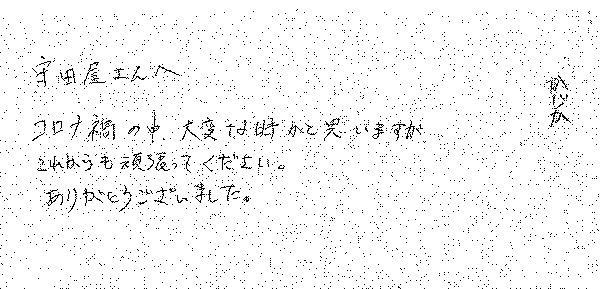 守田屋さんへ
コロナ禍の中、大変な時かと思いますが
これからも頑張ってください。
ありがとうございました。
かいか